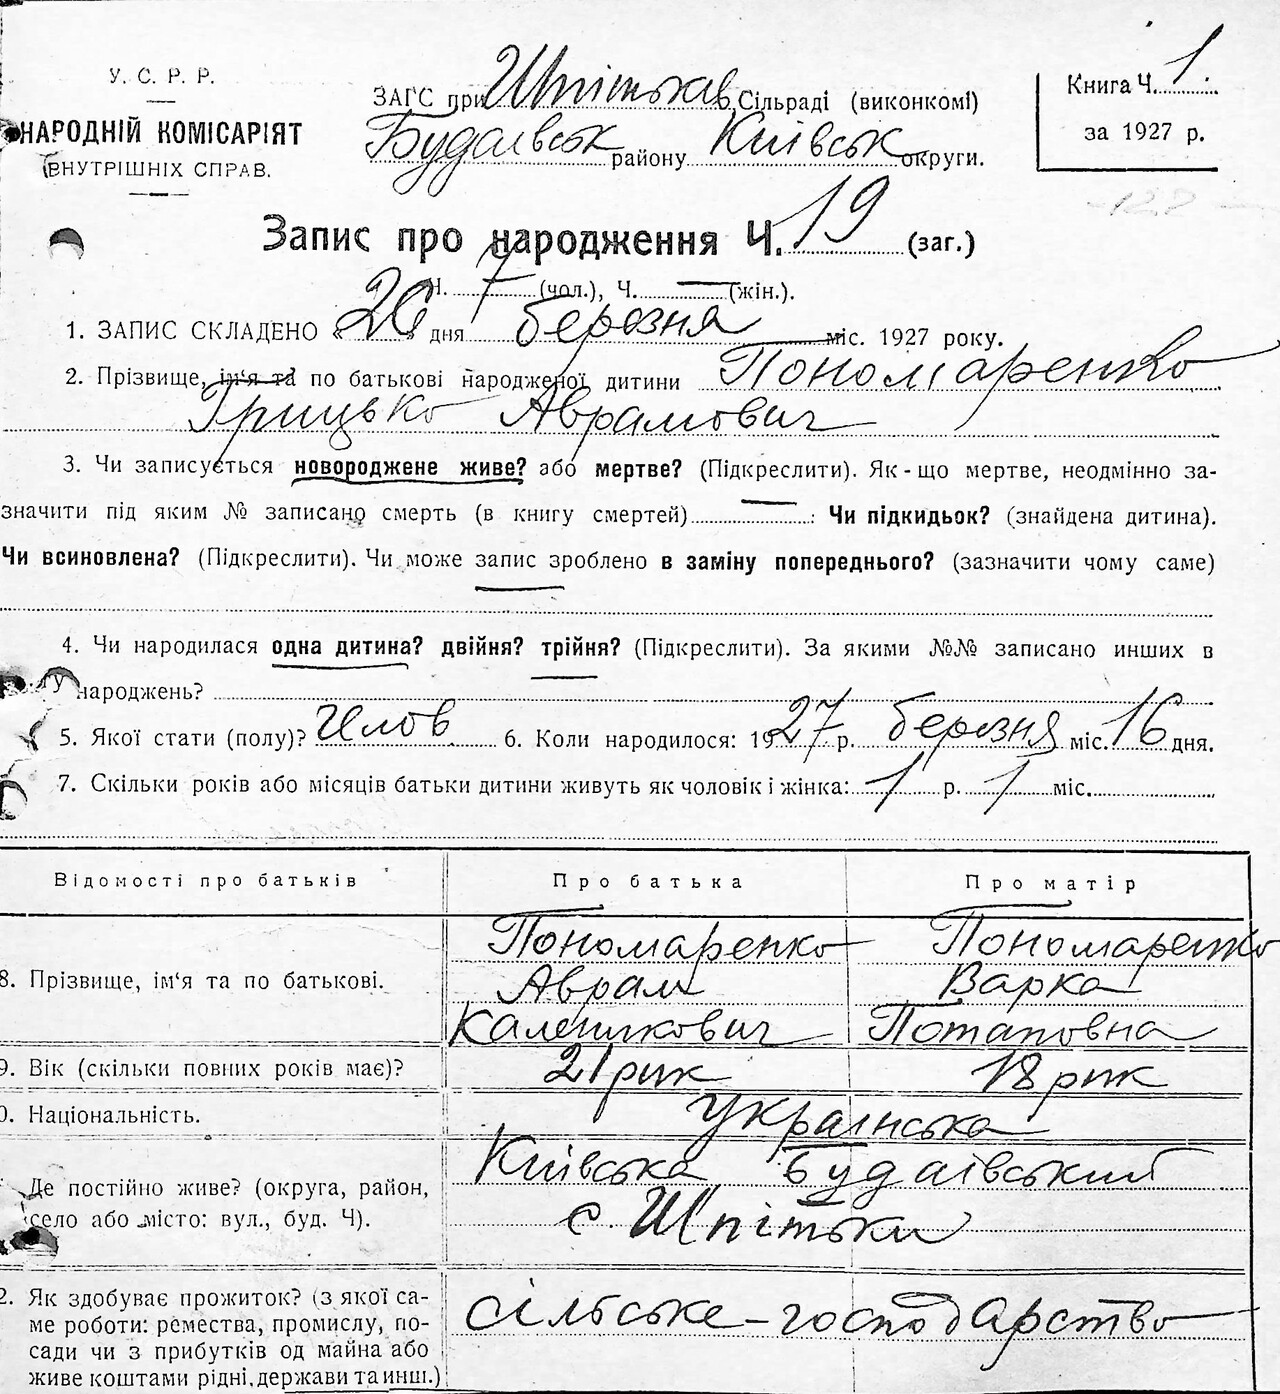 У. С. Р. Р.
НАРОДНІЙ КОМІСАРІЯТ
ВНУТРІШНІХ СПРАВ.
ЗАГС при Шпітьків Сільраді (виконкомі)
Будаївськ району Київськ округи.
Книга Ч. 1.
за 1927 р.
Запис про народження Ч. 19 (заг.)
Ч. 7 (чол.), Ч. — (жін.).
1. ЗАПИС СКЛАДЕНО « 20 » дня березня міс. 1927 року.
2. Прізвище, ім'я та по батькові народженої дитини Пономаренко
Грицько Аврамович
3. Чи записується новороджене живе? або мертве? (Підкреслити). Як-що мертве, неодмінно за-
значити під яким № записано смерть (в книгу смертей) — : Чи підкидьок? (знайдена дитина).
Чи всиновлена? (Підкреслити). Чи може запис зроблено в заміну попереднього? (зазначити чому саме)
4. Чи народилася одна дитина? двійня? трійня? (Підкреслити). За якими №№ записано инших в
народжень?
5. Якої стати (полу)? Чолов. 6. Коли народилося: 1927 р. березня міс. 16 дня.
7. Скільки років або місяців батьки дитини живуть як чоловік і жінка: 1 р. 1 міс.
Відомості про батьків Про батька Про матір
8. Прізвище, ім'я та по батькові.
Пономаренко Пономаренко
Аврам Варка
Каленикович Потаповна
9. Вік (скільки повних років має)? 21 рик 18 рик
0. Національність. українська
Де постійно живе? (округа, район,
село або місто: вул., буд. Ч).
Київська Будаївський
с. Шпітьки
2. Як здобуває прожиток? (з якої са-
ме роботи: ремества, промислу, по-
сади чи з прибутків од майна або
живе коштами рідні, держави та инш.)
сільське-господарство